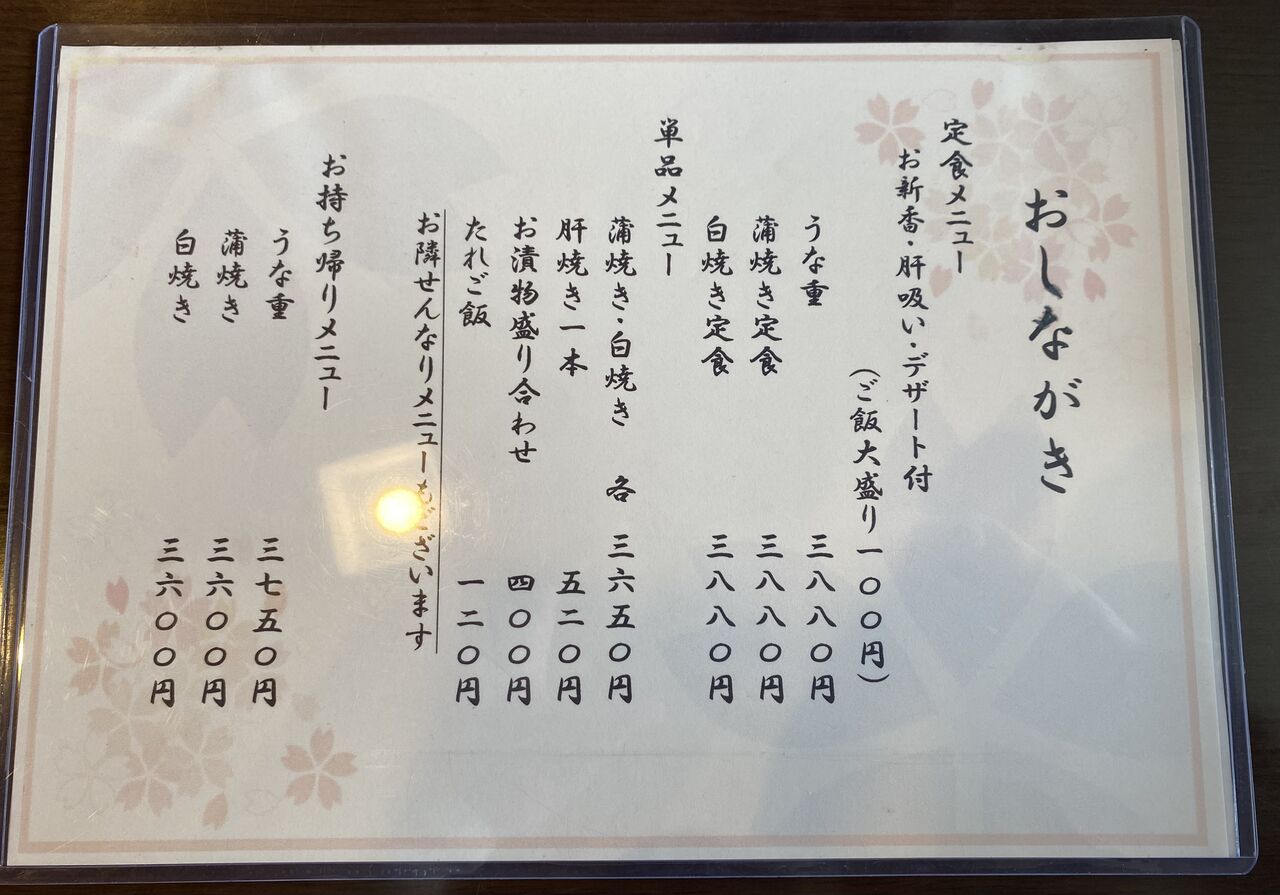 おしながき
定食メニュー
お新香・肝吸い・デザート付
(ご飯大盛り一〇〇円)
うな重 三八八〇円
蒲焼き定食 三八八〇円
白焼き定食 三八八〇円
単品メニュー
蒲焼き・白焼き 各 三六五〇円
肝焼き一本 五二〇円
お漬物盛り合わせ 四〇〇円
たれご飯 一二〇円
お隣せんなりメニューもございます
お持ち帰りメニュー
うな重 三七五〇円
蒲焼き 三六〇〇円
白焼き 三六〇〇円